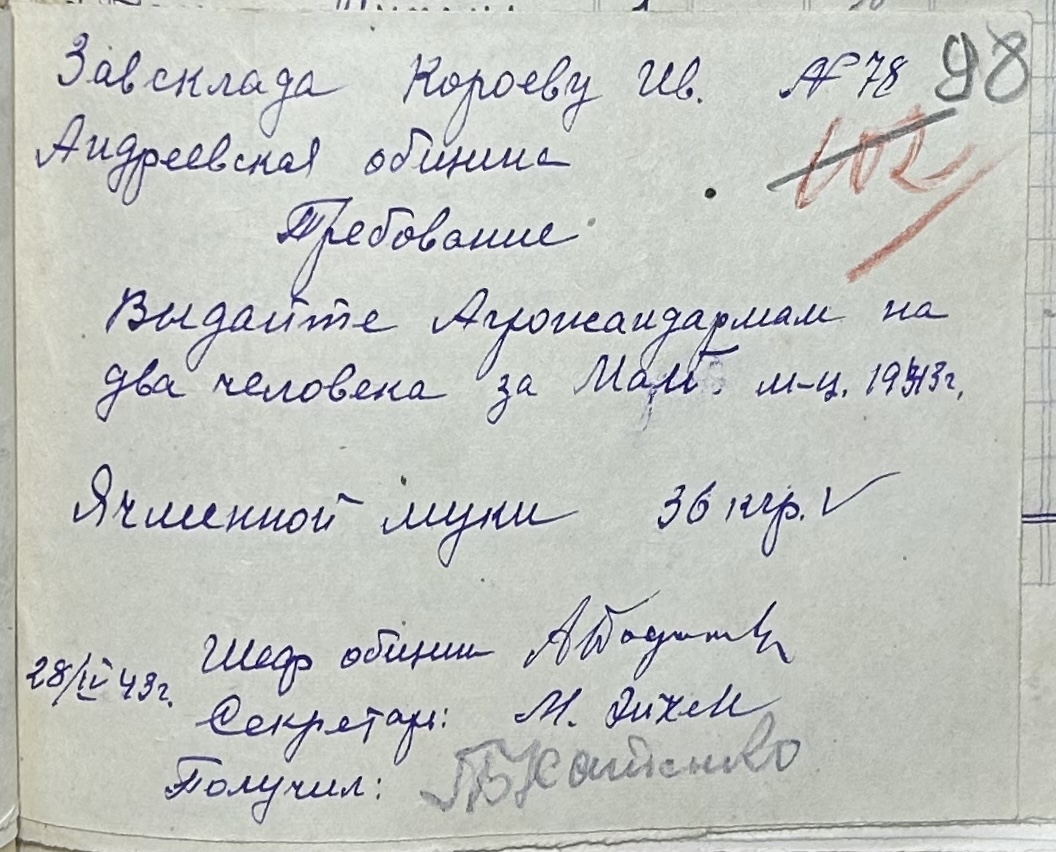 Завсклада Короеву Ив. № 78 98
102
Андреевская община
Требование
Выдайте Агрожандармам на
два человека за Май м-ц. 1943г.
Ячменной муки 36 кгр. V
Шеф общини
28/IV 43г.
Секретарь: М.
Получил: